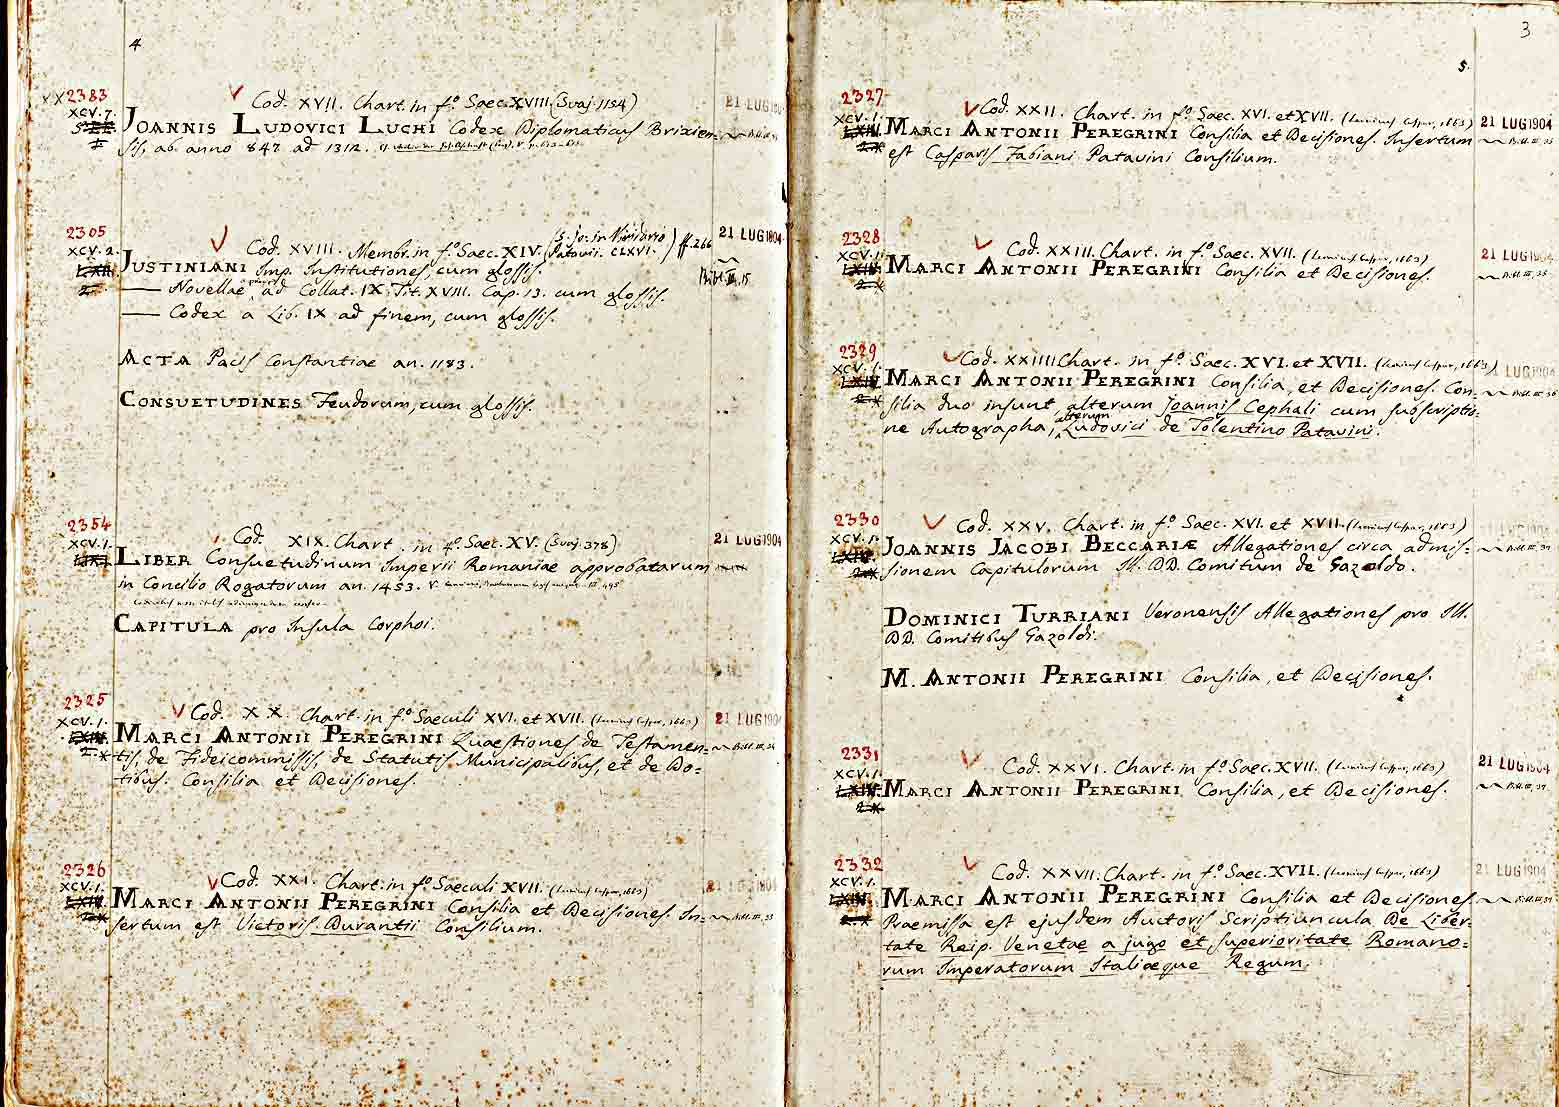 4
2383
XCV. 7.
Cod. XVII. Chart. in f.º Saec. XVIII. (Svaj. 1154)
21 LUG
JOANNIS LUDOVICI LUCHI Codex Diplomaticus Brixien=
sis, ab anno 847 ad 1312.
2305
XCV. 2.
LXII.
2.
Cod. XVIII. Membr. in f.º Saec. XIV. (S. Jo: in Viridario Patavii. CLXVI.) ff. 266
21 LUG 1904
JUSTINIANI Imp. Institutiones cum glossis.
Bibl. III, 15
— Novellae ad Collat. IX. Tit. XVIII. Cap. 13. cum glossis.
— Codex a Lib. IX ad finem, cum glossis.
ACTA Pacis Constantiae an. 1183.
CONSUETUDINES Feudorum, cum glossis.
2354
XCV. 1.
Cod. XIX. Chart. in 4.º Saec. XV. (Svaj. 378)
21 LUG 1904
LIBER Consuetudinum Imperii Romaniae approbatarum
in Concilio Rogatorum an. 1453.
CAPITULA pro Insula Corphoi.
2325
XCV. 1.
LXIV.
2.
Cod. XX. Chart. in f.º Saeculi XVI. et XVII.
21 LUG 1904
MARCI ANTONII PEREGRINI Quaestiones de Testamen=
tis, de Fideicommissis, de Statutis Municipalibus, et de Do=
tibus: Consilia et Decisiones.
2326
XCV. 1.
LXIV.
2.
Cod. XXI. Chart. in f.º Saeculi XVII.
MARCI ANTONII PEREGRINI Consilia et Decisiones. In=
sertum est Victoris Durantii Consilium.
3
5.
2327
XCV. 1.
LXIV.
2.
Cod. XXII. Chart. in f.º Saec. XVI. et XVII.
21 LUG 1904
MARCI ANTONII PEREGRINI Consilia et Decisiones. Insertum
est Casparis Fabiani Patavini Consilium.
2328
XCV. 1.
LXIV.
2.
Cod. XXIII. Chart. in f.º Saec. XVII.
21 LUG 1904
MARCI ANTONII PEREGRINI Consilia et Decisiones.
2329
XCV. 1.
LXIV.
2.
Cod. XXIIII. Chart. in f.º Saec. XVI. et XVII.
LUG 1904
MARCI ANTONII PEREGRINI Consilia, et Decisiones. Con=
silia duo insunt, alterum Joannis Cephali cum subscriptio=
ne Autographa, alterum Ludovici de Tolentino Patavini.
2330
XCV. 1.
LXIV.
2.
Cod. XXV. Chart. in f.º Saec. XVI. et XVII.
JOANNIS JACOBI BECCARIÆ Allegationes circa admis=
sionem Capitulorum Ill. DD. Comitum de Gazoldo.
DOMINICI TURRIANI Veronensis Allegationes pro Ill.
DD. Comitibus Gazoldi.
M. ANTONII PEREGRINI Consilia, et Decisiones.
2331
XCV. 1.
LXIV.
2.
Cod. XXVI. Chart. in f.º Saec. XVII.
21 LUG 1904
MARCI ANTONII PEREGRINI Consilia, et Decisiones.
2332
XCV. 1.
LXIV.
2.
Cod. XXVII. Chart. in f.º Saec. XVII.
21 LUG 1904
MARCI ANTONII PEREGRINI Consilia et Decisiones.
Praemissa est ejusdem Auctoris Scriptiuncula De Liber=
tate Reip. Venetae a jugo et superioritate Romano=
rum Imperatorum Italiæque Regum.